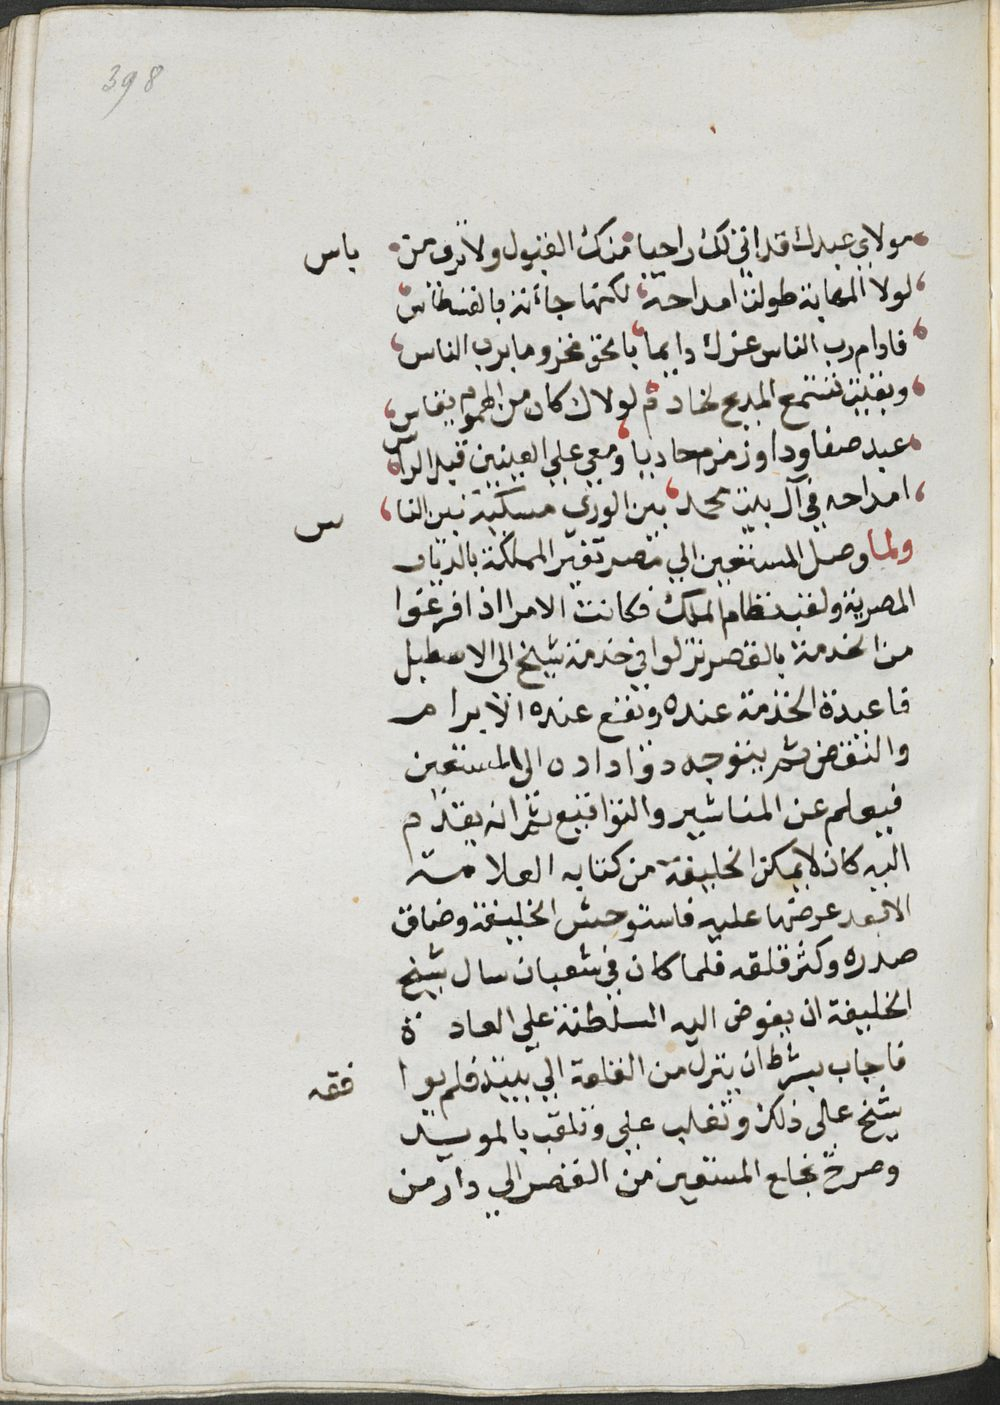 398
مولاي عبدك قد اتي لك راجيا منك القبول ولا ترى من باس
لولا المهابة طولت امداحه لكنها جاته بالقسطاس
فادام رب الناس عزك دايما بالحق محروما برب الناس
وبقيت تستمع المديح لخادم لولاك كان من الهموم يقاس
عبد صفا ودا وزمزم حاديا وسعي علي العينين قبل الراس
امداحه في آل بيت محمد بين الوري مسكية الانفاس
ولما وصل المستعين الي مصر تغير المملكة بالديار
المصرية ولقب نظام الملك فكانت الامرا اذا فرغوا
من الخدمة بالقصر نزلوا في خدمة شيخ الى الاصطبل
فاعيدة الخدمة عنده وتقع عنده الابرام
والنقض ثم يتوجه دواداده الى المستعين
فيعلم عن المناشير والتواقيع ثم انه يقدم
اليه كان لا يمكن الخليفة من كتابه العلامة
الا بعد عرضها عليه فاستوحش الخليفة وضاق
صدره وكثر قلقه فلما كان في شعبان سال شيخ
الخليفة ان يفوض اليه السلطنة علي العادة
فاجاب بشرط ان ينزل من القلعة الي بيته فلم يوافقه
شيخ على ذلك وتغلب علي وتلقب بالمويد
وصرح بخلع المستعين من القصر الي دار من